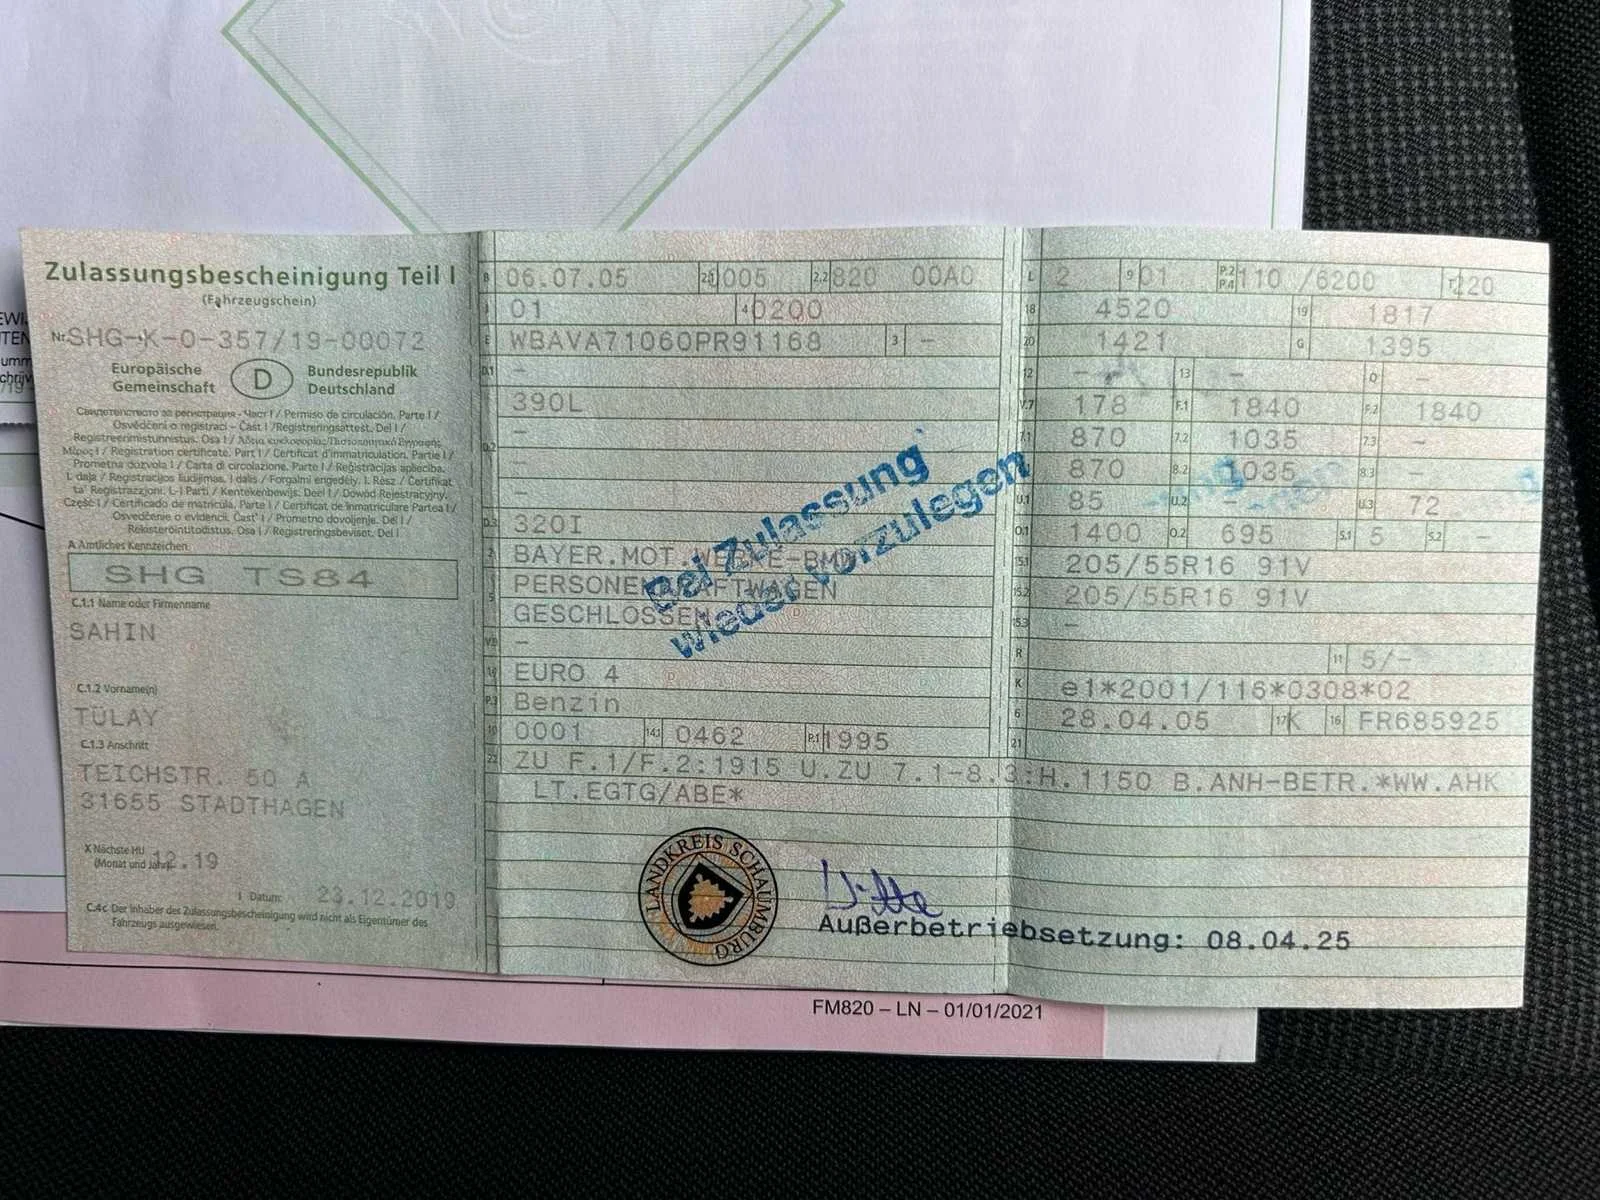 Zulassungsbescheinigung Teil I
(Fahrzeugschein)
Nr. SHG-K-0-357/19-00072
Europäische Gemeinschaft
D
Bundesrepublik Deutschland
Свидетелство за регистрация - Част I / Permiso de circulación. Parte I /
Osvědčení o registraci - Část I / Registreringsattest. Del I /
Registreerimistunnistus. Osa I / Άδεια κυκλοφορίας/Πιστοποιητικό Εγγραφής
Μέρος I / Registration certificate. Part I / Certificat d'immatriculation. Partie I /
Prometna dozvola I / Carta di circolazione. Parte I / Reģistrācijas apliecība.
I. daļa / Registracijos liudijimas. I dalis / Forgalmi engedély. I. Rész / Ċertifikat
ta' Reġistrazzjoni. L-I Parti / Kentekenbewijs. Deel I / Dowód Rejestracyjny.
Część I / Certificado de matrícula. Parte I / Certificat de înmatriculare Partea I /
Osvedčenie o evidencii. Časť I / Prometno dovoljenje. Del I /
Rekisteröintitodistus. Osa I / Registreringsbeviset. Del I
A Amtliches Kennzeichen
SHG TS84
C.1.1 Name oder Firmenname
SAHIN
C.1.2 Vorname(n)
TÜLAY
C.1.3 Anschrift
TEICHSTR. 50 A
31655 STADTHAGEN
X Nächste HU
(Monat und Jahr) 12.19
I Datum: 23.12.2019
C.4c Der Inhaber der Zulassungsbescheinigung wird nicht als Eigentümer des
Fahrzeugs ausgewiesen.
B 06.07.05 2.1 005 2.2 820 00A0
J 01 4 0200
E WBAVA71060PR91168 3 -
D.1 -
390L
D.2 -
-
-
D.3 320I
2 BAYER.MOT.WERKE-BMW
5 PERSONENKRAFTWAGEN
GESCHLOSSEN
V.9 -
14 EURO 4
P.3 Benzin
10 0001 14.1 0462 P.1 1995
L 2 9 01 P.2 P.4 110 /6200 T 220
18 4520 19 1817
20 1421 G 1395
12 - 13 - Q -
V.7 178 F.1 1840 F.2 1840
7.1 870 7.2 1035 7.3 -
870 8.2 1035 8.3 -
U.1 85 U.2 U.3 72
O.1 1400 O.2 695 S.1 5 S.2 -
15.1 205/55R16 91V
15.2 205/55R16 91V
15.3 -
R 11 5/-
K e1*2001/116*0308*02
6 28.04.05 17 K 16 FR685925
21
22 ZU F.1/F.2:1915 U.ZU 7.1-8.3:H.1150 B.ANH-BETR.*WW.AHK
LT.EGTG/ABE*
Bei Zulassung
wieder vorzulegen
LANDKREIS SCHAUMBURG
Außerbetriebsetzung: 08.04.25
FM820 – LN – 01/01/2021